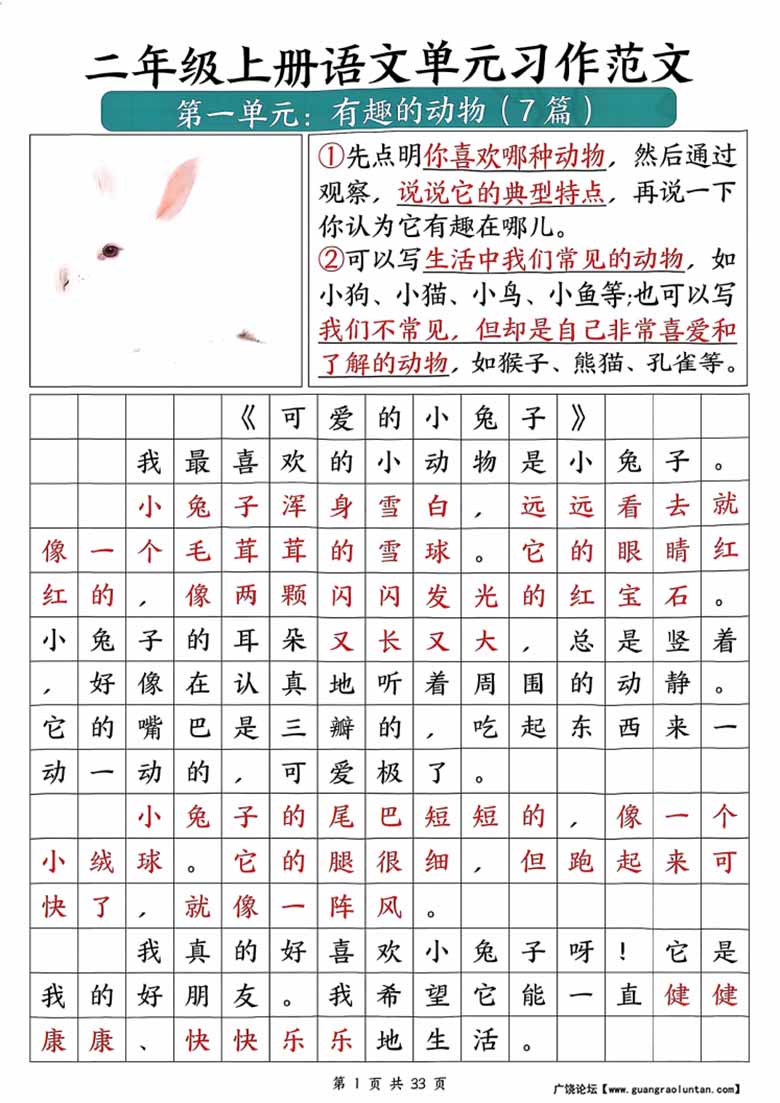 二年级上册语文单元习作范文
第一单元：有趣的动物（7篇）
①先点明你喜欢哪种动物，然后通过
观察，说说它的典型特点，再说一下
你认为它有趣在哪儿。
②可以写生活中我们常见的动物，如
小狗、小猫、小鸟、小鱼等;也可以写
我们不常见，但却是自己非常喜爱和
了解的动物，如猴子、熊猫、孔雀等。
《可爱的小兔子》
我最喜欢的小动物是小兔子。
小兔子浑身雪白，远远看去就
像一个毛茸茸的雪球。它的眼睛红
红的，像两颗闪闪发光的红宝石。
小兔子的耳朵又长又大，总是竖着
，好像在认真地听着周围的动静。
它的嘴巴是三瓣的，吃起东西来一
动一动的，可爱极了。
小兔子的尾巴短短的，像一个
小绒球。它的腿很细，但跑起来可
快了，就像一阵风。
我真的好喜欢小兔子呀！它是
我的好朋友。我希望它能一直健健
康康、快快乐乐地生活。
第 1 页 共 33 页
广饶论坛【www.guangraoluntan.com】